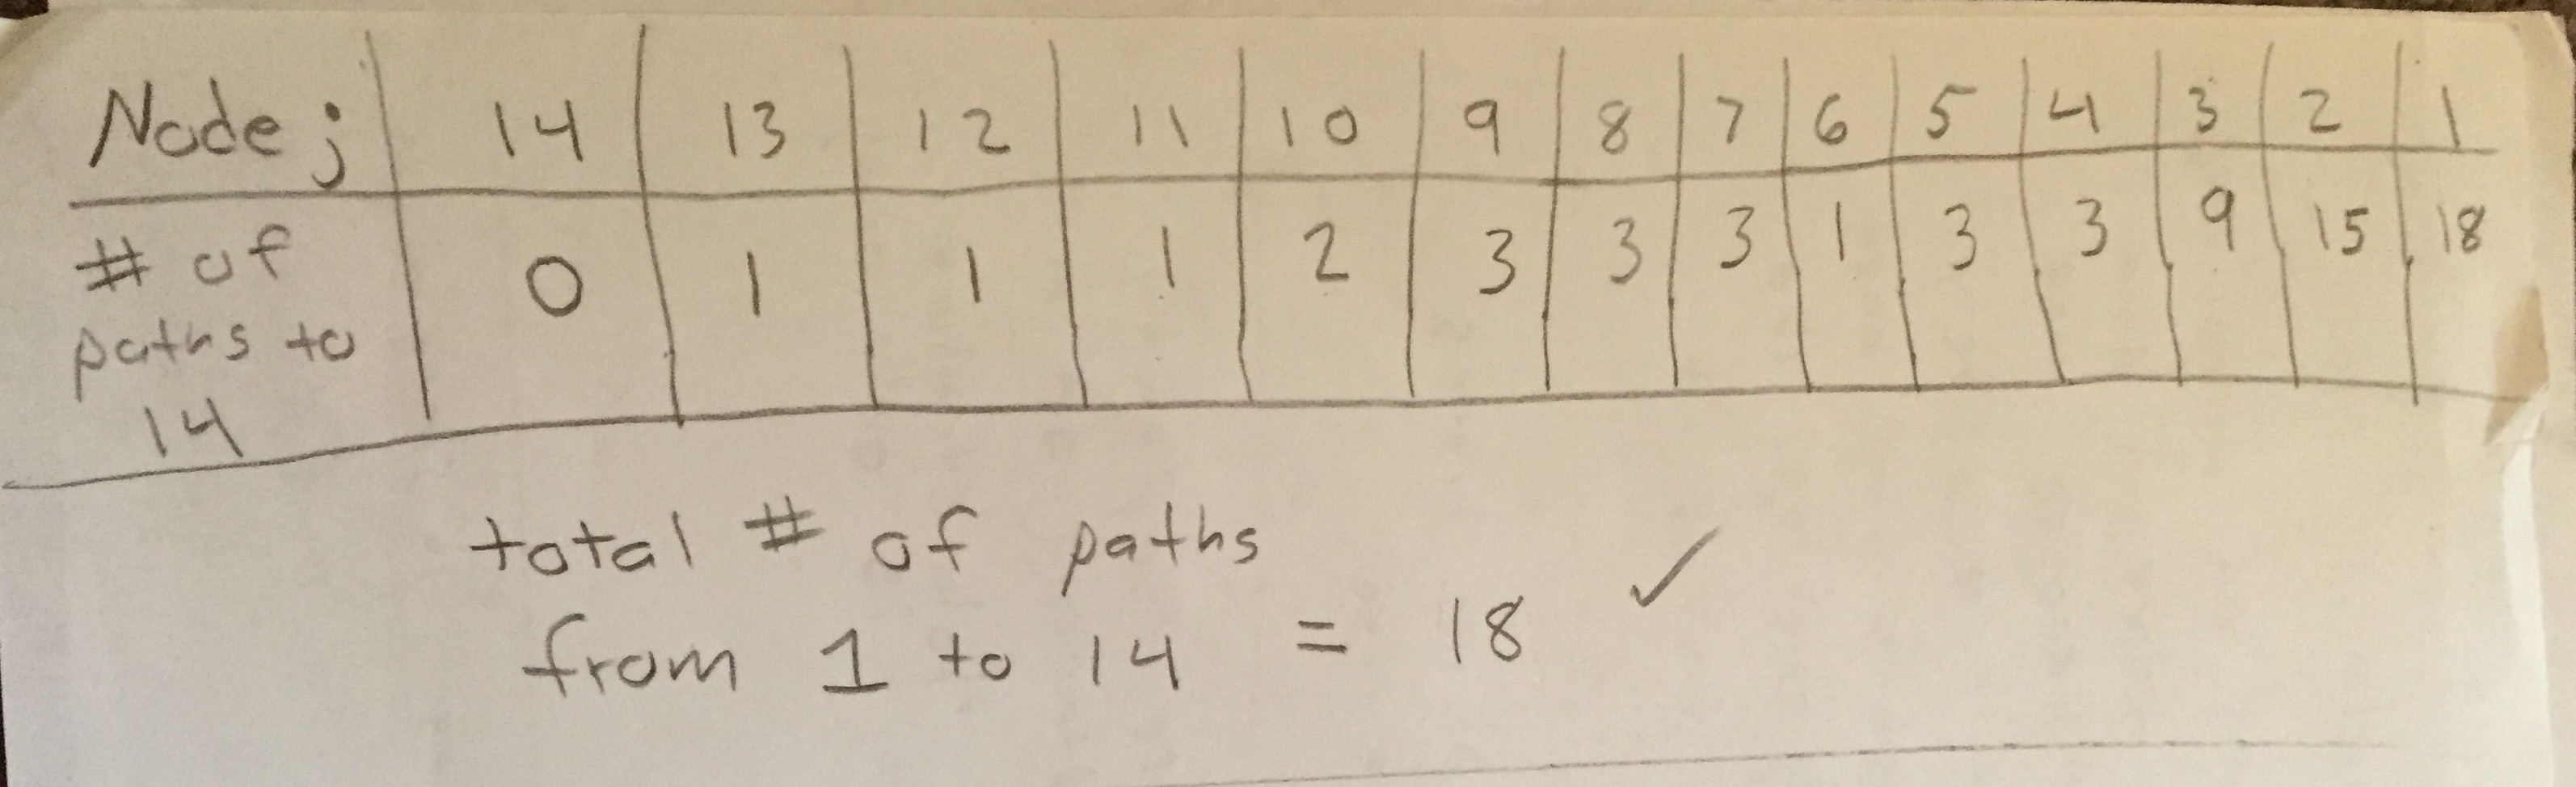 Node j 14 13 12 11 10 9 8 7 6 5 4 3 2 1
# of
paths to
14 0 1 1 1 2 3 3 3 1 3 3 9 15 18
total # of paths
from 1 to 14 = 18 ✓